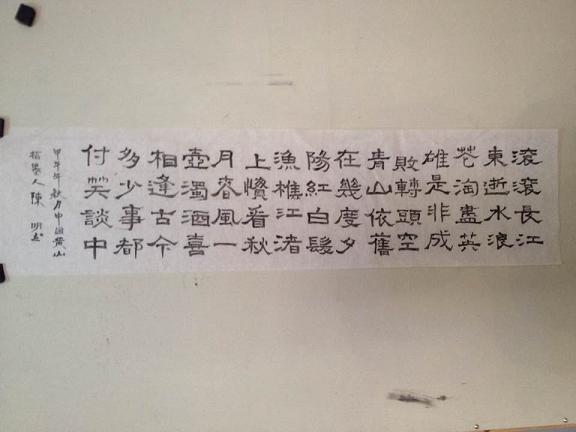 滚滚長江
東逝水浪
花淘盡英
雄是非成
敗轉頭空
青山依舊
在幾度夕
陽紅白髮
漁樵江渚
上慣看秋
月春風一
壺濁酒喜
相逢古今
多少事都
付笑談中
甲午年秋月中国黄山
人陳明